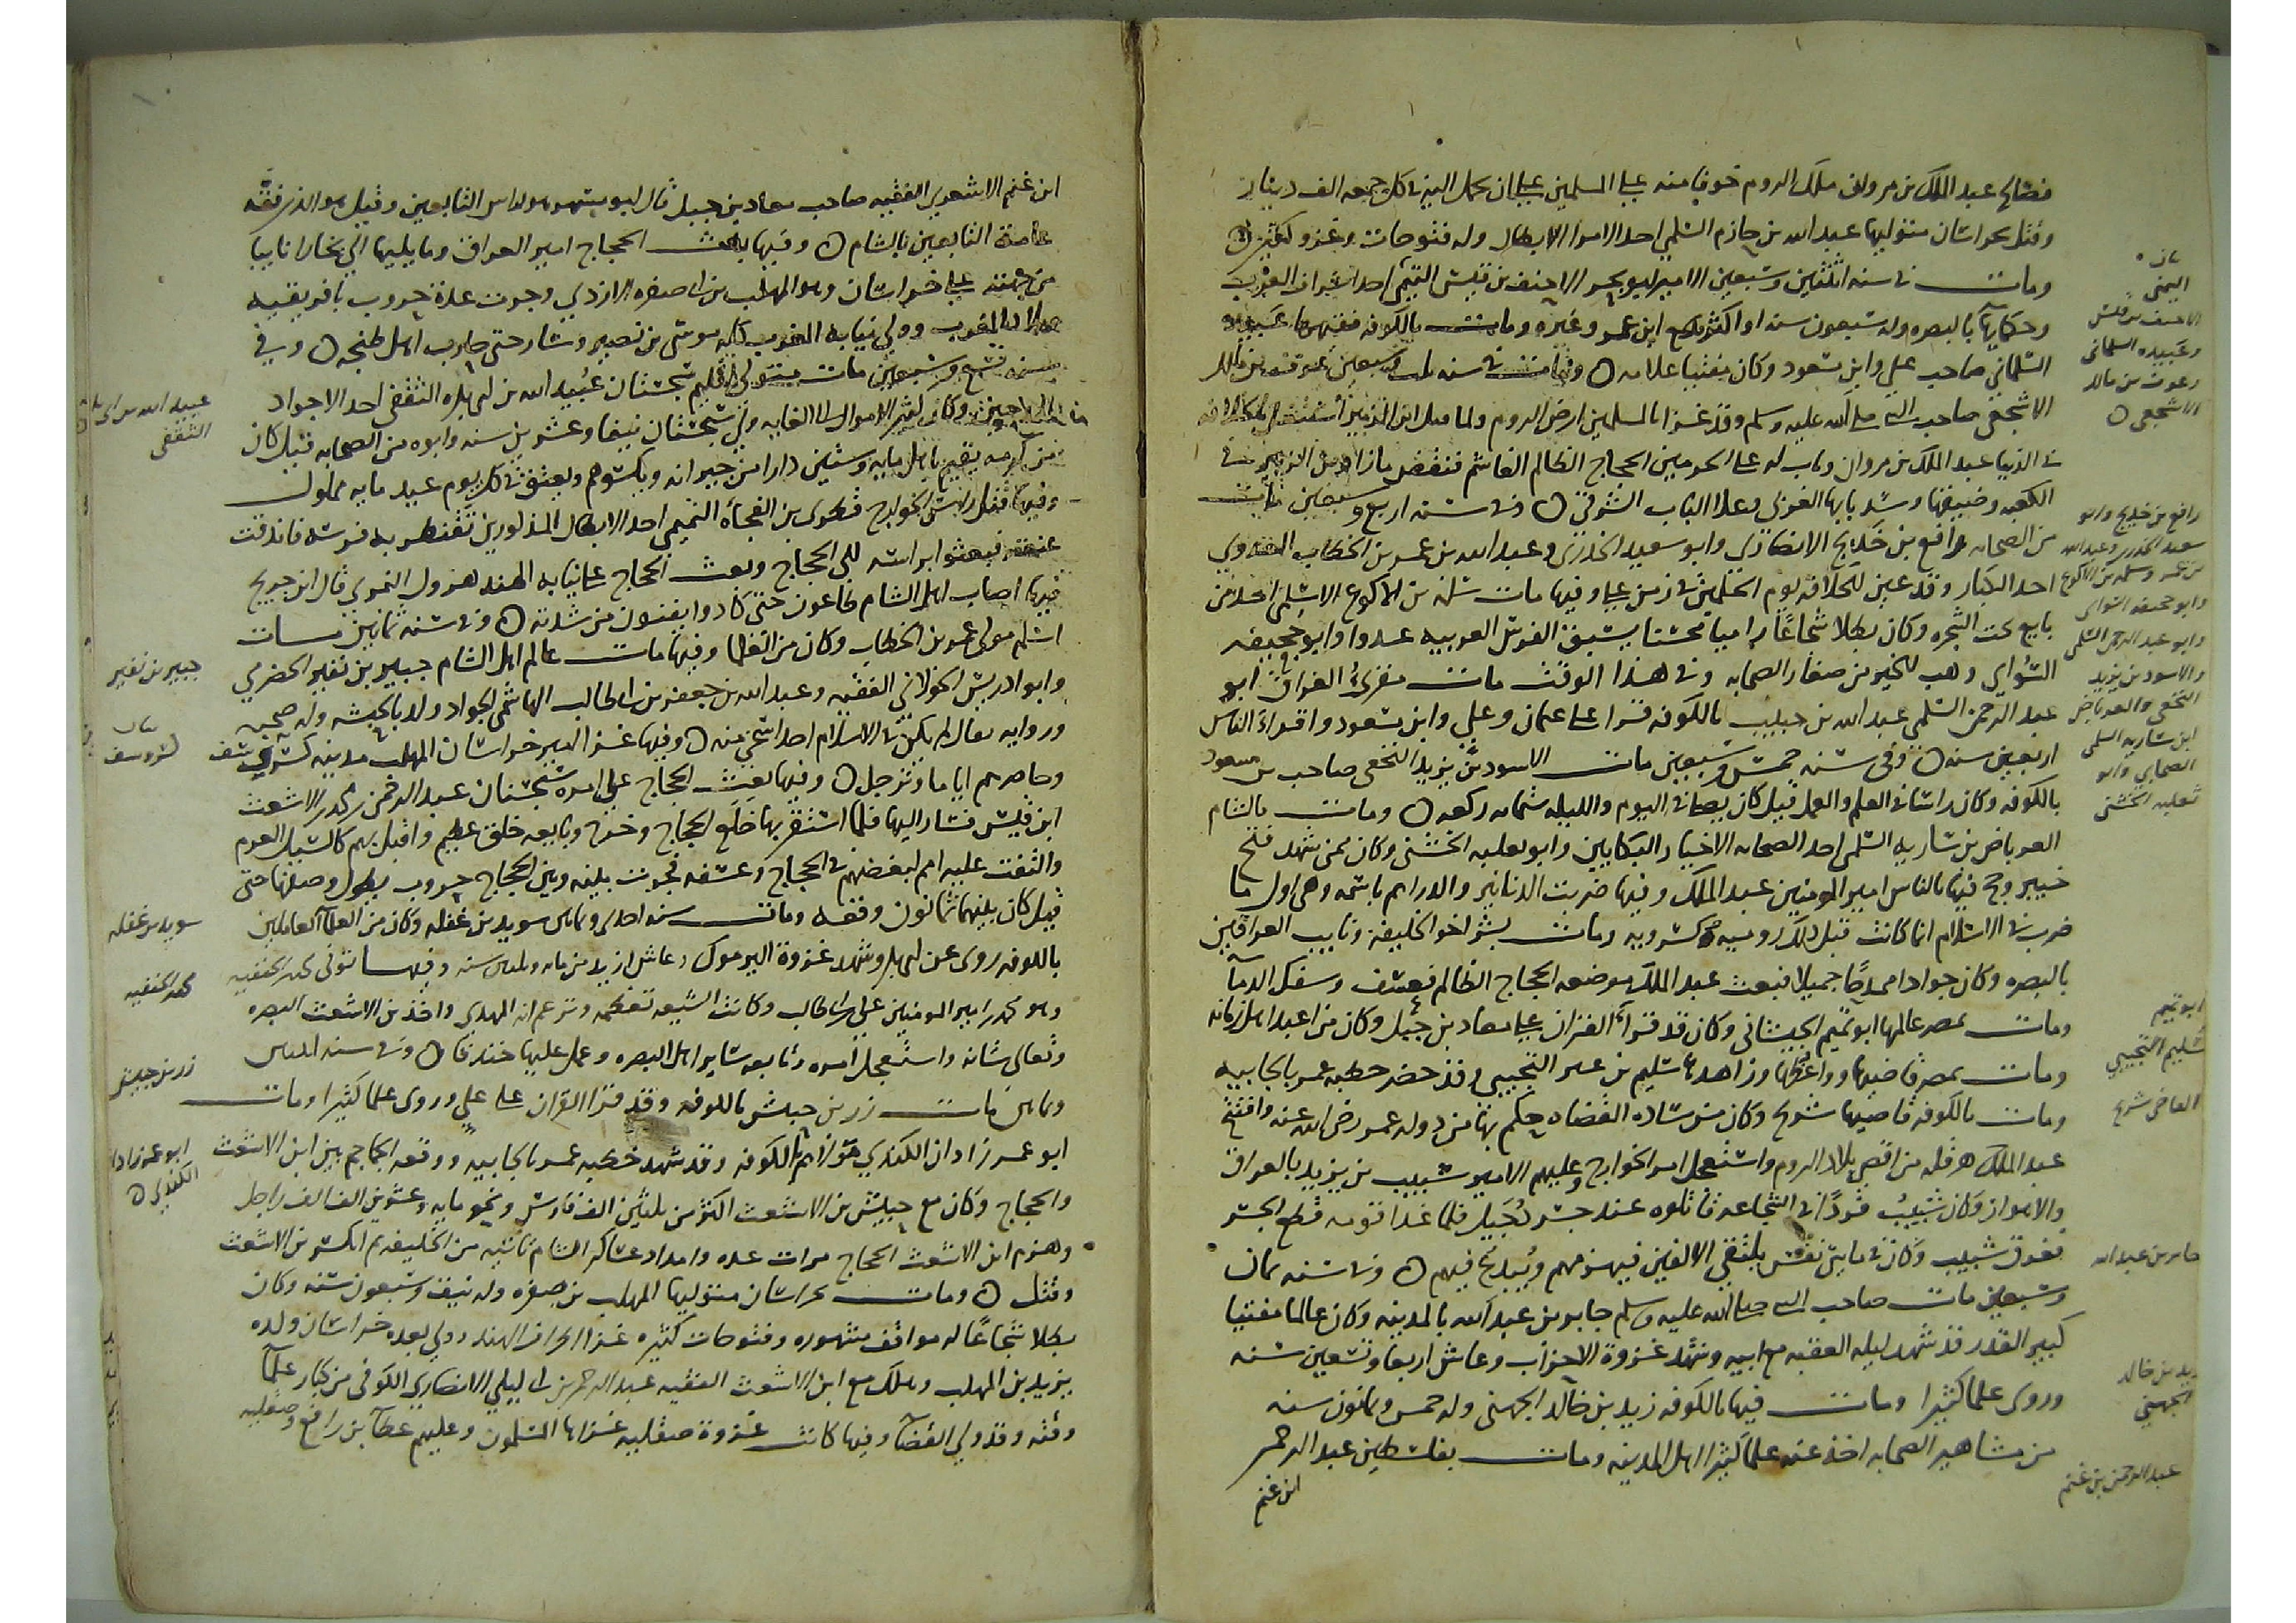 فصالح عبد الملك بن مروان ملك الروم خوفا منه على المسلمين على ان يحمل اليه في كل جمعه الف دينار
وقتل بخراسان متوليها عبد الله بن حازم السلمي احد الامرا الابطال وله فتوحات وغزو كثير
ومات في سنه اثنتين وسبعين الامير ابو بحر الاحنف بن قيس التميمي احد اشراف العرب
وحكمايها بالبصره وله سبعون سنه او اكثر سمع ابن عمر وغيره ومات بالكوفه فقيهها عبيده
السلماني صاحب علي وابن مسعود وكان مفتيا علامه ومات في سنه ثلث وسبعين عوف بن مالك
الاشجعي صاحب النبي صلى الله عليه وسلم وقد غزا بالمسلمين ارض الروم ولما قتل ابن الزبير استقل بممالك
في الدنيا عبد الملك بن مروان وناب له على الحرمين الحجاج الظالم الغاشم فنقض ما زاد ابن الزبير في
الكعبه وضيقها وسد بابها الغربي وعلا الباب الشرقي وفي سنه اربع وسبعين مات
من الصحابه رافع بن خديج الانصاري وابو سعيد الخدري وعبد الله بن عمر بن الخطاب العدوي
احد الكبار وقد عين للخلافه يوم الحكمين في زمن علي وفيها مات سلمه بن الاكوع الاسلمي احد من
بايع تحت الشجره وكان بطلا شجاعا راميا محسنا يسبق الفرس العربيه عدوا وابو جحيفه
السوائي وهب الخير من صغار الصحابه وفي هذا الوقت مات مقرئ العراق ابو
عبد الرحمن السلمي عبد الله بن حبيب بالكوفه قرا على عثمان وعلي وابن مسعود واقرا الناس
اربعين سنه وفي سنه خمس وسبعين مات الاسود بن يزيد النخعي صاحب بن مسعود
بالكوفه وكان راسا في العلم والعمل قيل كان يصلي في اليوم والليله ستمايه ركعه ومات بالشام
العرباض بن ساريه السلمي احد الصحابه الاخيار البكايين وابو ثعلبه الخشني وكان ممن شهد فتح
خيبر وحج فيها بالناس امير المومنين عبد الملك وفيها ضربت الدنانير والدراهم باسمه وهي اول ما
ضرب في الاسلام انما كانت قبل ذلك روميه وكسرويه ومات بشر اخو الخليفه ونايب العراقين
بالبصره وكان جوادا ممدحا جميلا فبعث عبد الملك موضعه الحجاج الظالم فعسف وسفك الدما
ومات بمصر عالمها ابو تميم الجيشاني وكان قد قرا القران على معاد بن جبل وكان من اعبد اهل زمانه
ومات بمصر قاضيها وواعظها وزاهدها سليم بن عتر التجيبي وقد حضر خطبه عمر بالجابيه
ومات بالكوفه قاضيها شريح وكان من ساده القضاه حكم بها من دوله عمر رضي الله عنه وافتتح
عبد الملك هرقله من اقصى بلاد الروم واستفحل امر الخوارج وعليهم الامير شبيب بن يزيد بالعراق
والاهواز وكان شبيب فردا في الشجاعه قاتلوه عند جسر دجيل فلما عدا قومه قطع الجسر
فغرق شبيب وكان في مايتي نفس يلتقي الالفين فيهزمهم ويبدع فيهم وفي سنه ثمان
وسبعين مات صاحب النبي صلى الله عليه وسلم جابر بن عبد الله بالمدينه وكان عالما مفتيا
كبير القدر قد شهد ليله العقبه مع ابيه وشهد غزوة الاحزاب وعاش اربعا وتسعين سنه
وروى علما كثيرا ومات فيها بالكوفه زيد بن خالد الجهني وله خمس وثمانون سنه
من مشاهير الصحابه اخذ عنه علما كثيرا اهل المدينه ومات بفلسطين عبد الرحمن
ابن غنم
الاحنف بن قيس
وعبيده السلماني
وعوف بن مالك
الاشجعي
رافع بن خديج وابو
سعيد الخدري وعبد الله
بن عمر وسلمه بن الاكوع
وابو جحيفه السوائي
وابو عبد الرحمن السلمي
والاسود بن يزيد
النخعي والعرباض
ابن ساريه السلمي
الصحابي وابو
ثعلبه الخشني
ابو تميم
سليم التجيبي
القاضي شريح
جابر بن عبد الله
زيد بن خالد
الجهني
عبد الرحمن بن غنم
ابن غنم الاشعري الفقيه صاحب معاد بن جبل قال ابو مسهر هو راس التابعين وقيل هو الذي فقه
عامة التابعين بالشام وفيها بعث الحجاج امير العراق وما يليها الى بخارا نايبا
من جهته على خراسان وهو المهلب بن ابي صفره الازدي وجرت عدة حروب بافريقيه
المغرب وولي نيابه المغرب كله موسى بن نصير وسار حتى حارب اهل طنجه وفي
سنه تسع وسبعين مات متولي اقليم سجستان عبيد الله بن ابي بكره الثقفي احد الاجواد
وكان كثير الاموال الى الغايه ولي سجستان نيفا وعشرين سنه وابوه من الصحابه قيل كان
من كرمه يقيم باهل مايه وستين دارا من جيرانه ويكسوهم ويعتق في كل يوم عيد مايه مملوك
وفيها قتل راس الخوارج قطري بن الفجأه التميمي احد الابطال المذكورين تقنطر به فرسه فاندقت
عنقه فبعثوا براسه الى الحجاج وبعث الحجاج على نيابه الهند هرون النمري قال ابن جرير
فيها اصاب اهل الشام طاعون حتى كادوا يفنون من شدته وفي سنه ثمانين مات
اسلم مولى عمر بن الخطاب وكان من العلما وفيها مات عالم اهل الشام جبير بن نفير الحضرمي
وابو ادريس الخولاني الفقيه وعبد الله بن جعفر بن ابي طالب الهاشمي الجواد ولد بالحبشه وله صحبه
وروايه يقال لم يكن في الاسلام احد اسخى منه وفيها غزا امير خراسان المهلب مدينه كش ونسف
وحاصرهم اياما وترحل وفيها بعث الحجاج على امره سجستان عبد الرحمن بن محمد بن الاشعث
ابن قيس فسار اليها فلما استقر بها خلع الحجاج وخرج وبايعه خلق عظيم واقبل بهم كالسيل العرم
والتفت عليه امم لبغضهم في الحجاج وعسفه فجرت بينه وبين الحجاج حروب يطول وصفها حتى
قيل كان بينهما ثمانون وقعه ومات سنه احدى وثمانين سويد بن غفله وكان من العلما العاملين
بالكوفه روى عن ابي بكر وشهد غزوة اليرموك وعاش ازيد من مايه وثلاثين سنه وفيها توفي محمد بن الحنفيه
وهو محمد بن امير المومنين علي بن ابي طالب وكانت الشيعه تعظمه وتزعم انه المهدي واخذ بن الاشعث البصره
وتعالى شانه واستفحل امره وتابعه ساير اهل البصره وعمل عليها خندقا وفي سنه اثنتين
وثمانين مات زر بن حبيش بالكوفه وقد قرا القران على علي وروى علما كثيرا ومات
ابو عمر زادان الكندي مولاهم بالكوفه وقد شهد خطبه عمر بالجابيه ووقعه الجماجم بين ابن الاشعث
والحجاج وكان مع جيش بن الاشعث اكثر من ثلثين الف فارس ونحو مايه وعشرين الف راجل
وهزم ابن الاشعث الحجاج مرات عده وامداد عساكر الشام تاتيه من الخليفه ثم انكسر بن الاشعث
وقتل ومات بخراسان متوليها المهلب بن ابي صفره وله نيف وسبعون سنه وكان
بطلا شجاعا له مواقف مشهوره وفتوحات كثيره غزا اطراف الهند وولي بعده خراسان ولده
يزيد بن المهلب وهلك مع ابن الاشعث الفقيه عبد الرحمن بن ابي ليلى الانصاري الكوفي من كبار علما
وقته وقد ولي القضا وفيها كانت غزوة صقليه غزاها المسلمون وعليهم عطا بن رافع
عبيد الله بن ابي بكره
الثقفي
جبير بن نفير
كش ونسف
سويد بن غفله
محمد بن الحنفيه
زر بن حبيش
ابو عمر زادان
الكندي